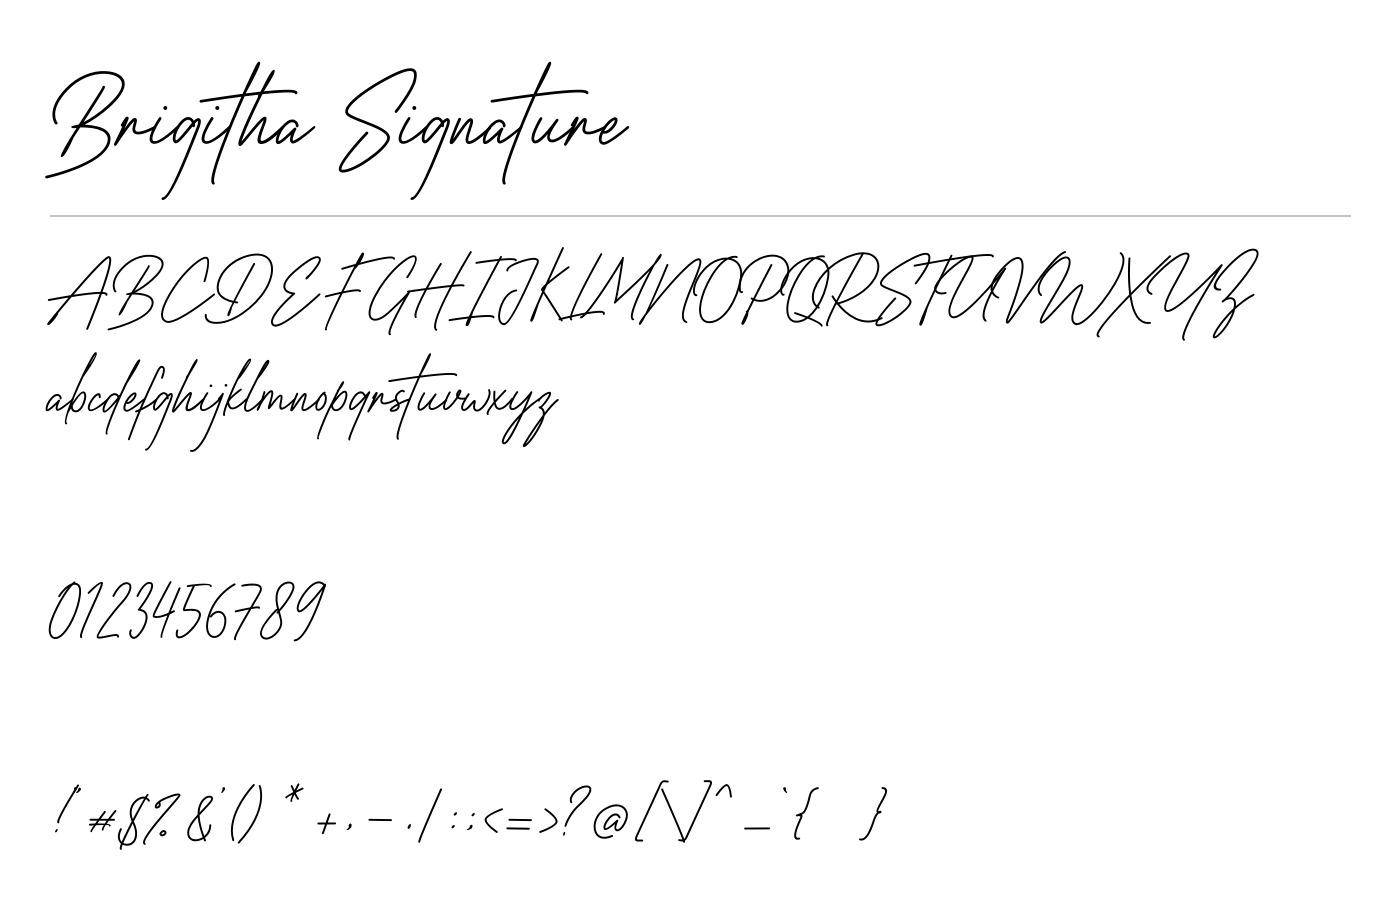 Brigitha Signature
ABCDEFGHIJKLMNOPQRSTUVWXYZ
abcdefghijklmnopqrstuvwxyz
0123456789
!"#$%&'()*+,-./:;<=>?@[\]^_`{ }